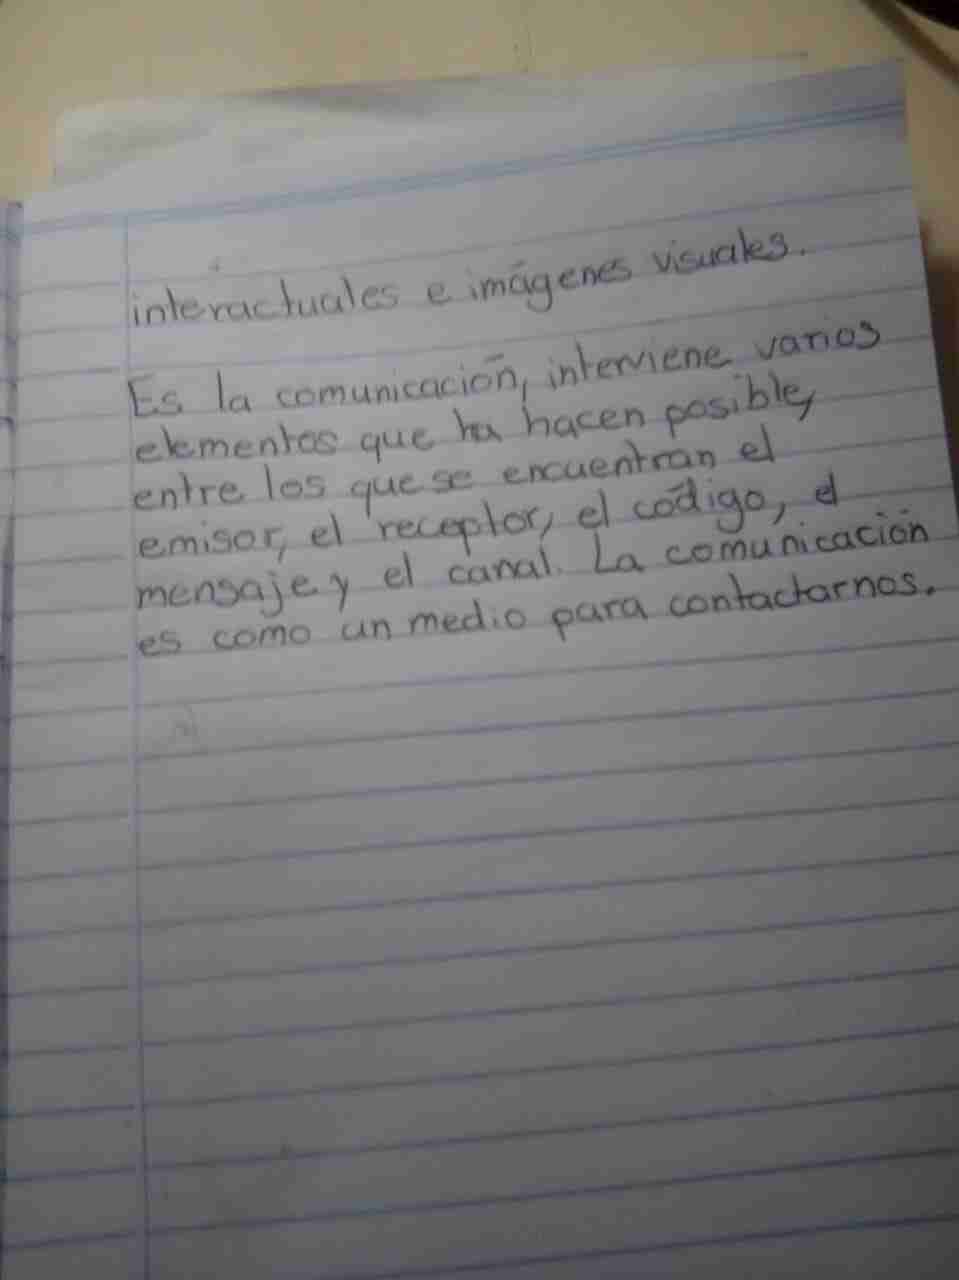 interactuales e imágenes visuales.
Es la comunicación, interviene varios
elementos que la hacen posible,
entre los que se encuentran el
emisor, el receptor, el código, el
mensaje y el canal. La comunicación
es como un medio para contactarnos.